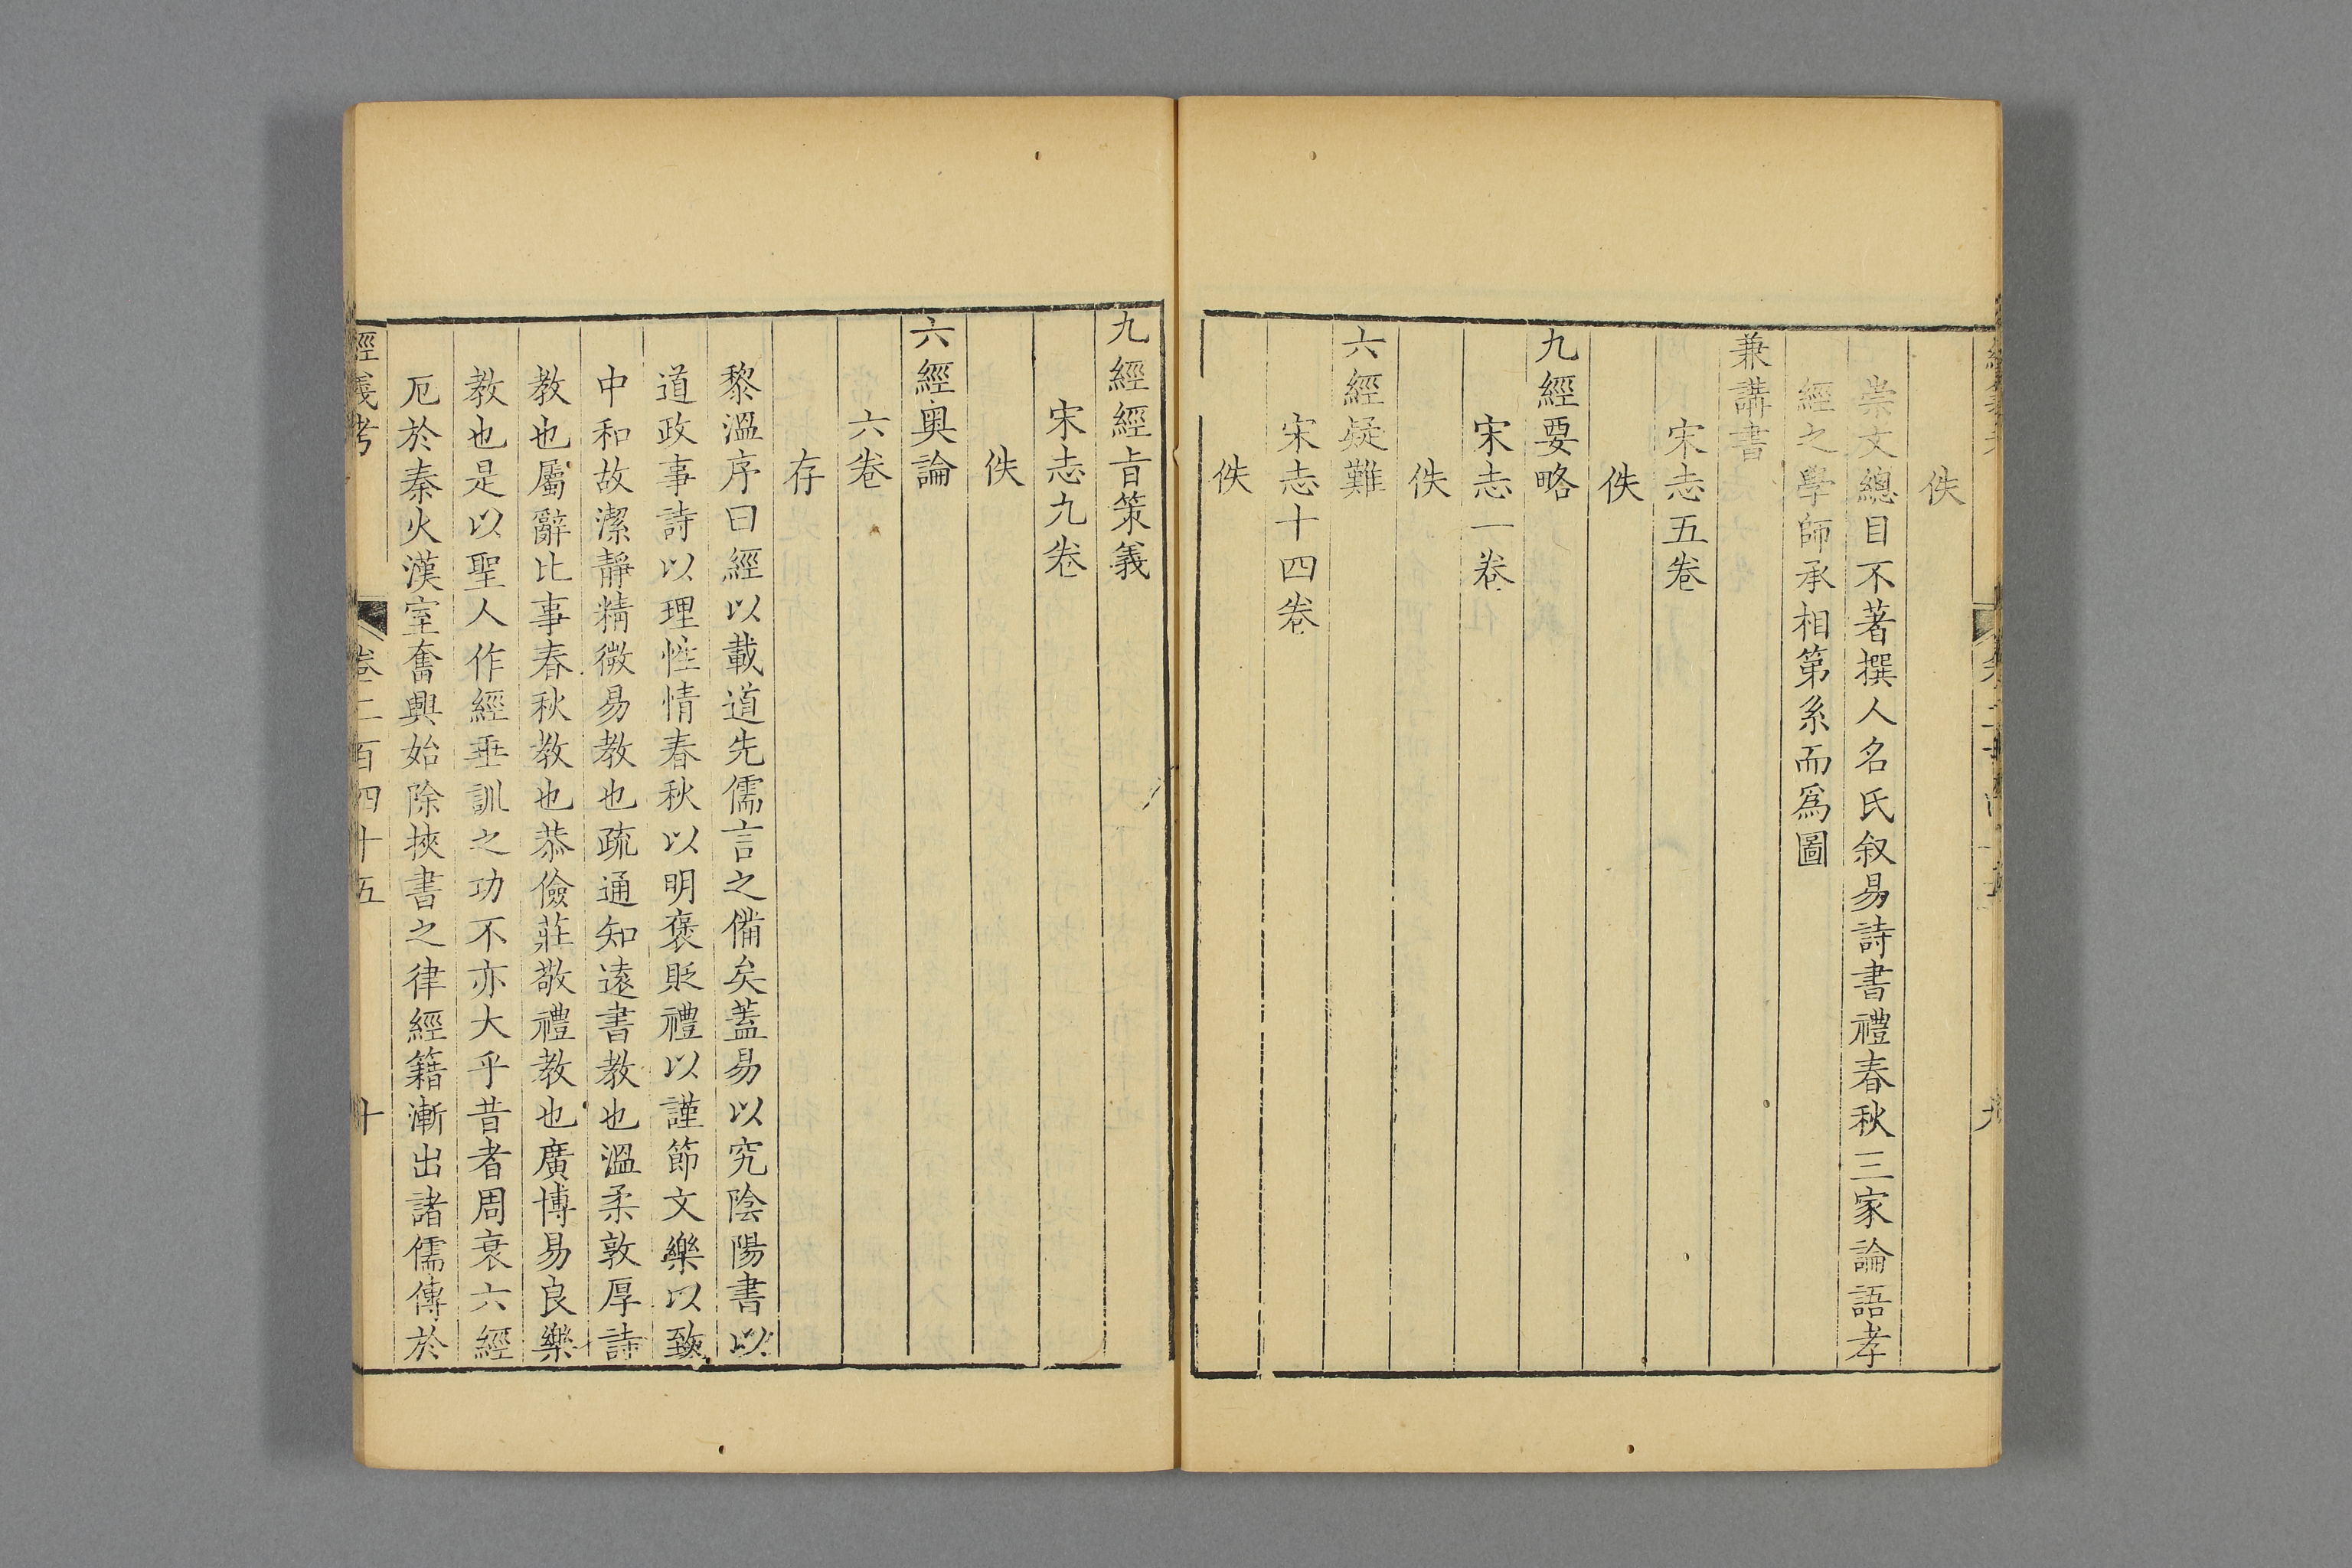 佚
崇文總目不著撰人名氏叙易詩書禮春秋三家論語孝
經之學師承相第系而爲圖
兼講書
宋志五卷
佚
九經要略
宋志一卷
佚
六經疑難
宋志十四卷
佚
九經經旨策義
宋志九卷
佚
六經奥論
六卷
存
黎溫序曰經以載道先儒言之備矣蓋易以究陰陽書以
道政事詩以理性情春秋以明褒貶禮以謹節文樂以致
中和故潔靜精微易教也疏通知遠書教也溫柔敦厚詩
教也屬辭比事春秋教也恭儉莊敬禮教也廣博易良樂
教也是以聖人作經垂訓之功不亦大乎昔者周衰六經
厄於秦火漢室奮興始除挾書之律經籍漸出諸儒傳於
經義考 卷二百四十五 十